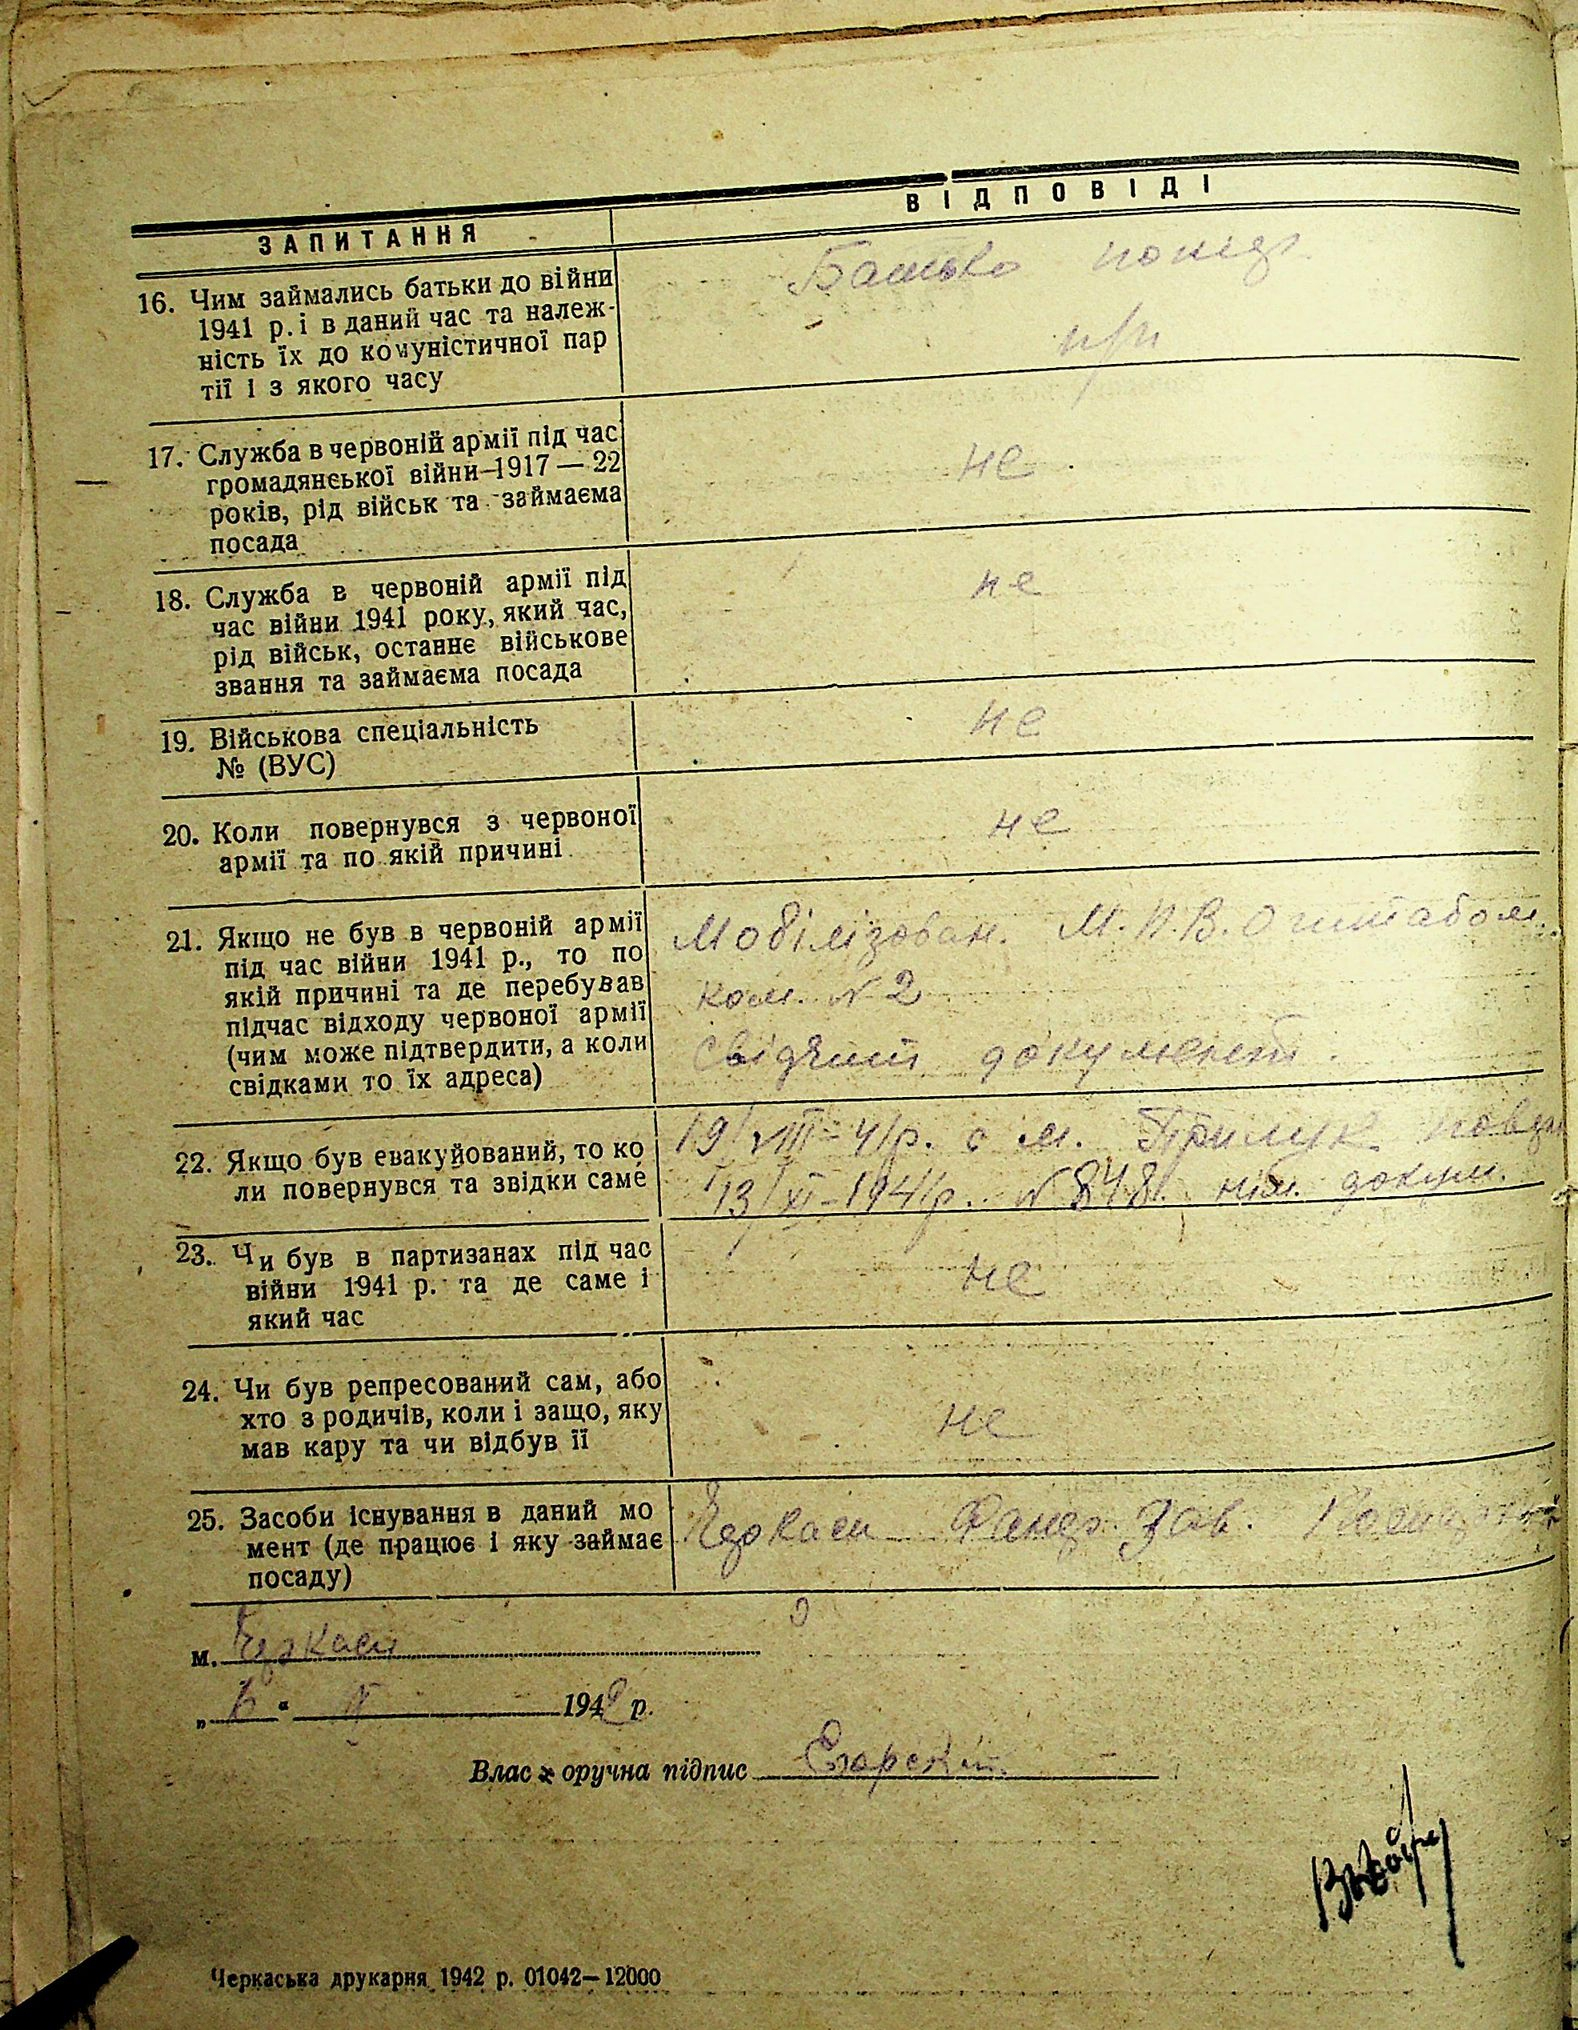 ЗАПИТАННЯ
ВІДПОВІДІ
16. Чим займались батьки до війни
1941 р. і в даний час та належ-
ність їх до комуністичної пар
тії і з якого часу
Батько
п/п
17. Служба в червоній армії під час
громадянської війни—1917 — 22
років, рід військ та займаєма
посада
не
18. Служба в червоній армії під
час війни 1941 року, який час,
рід військ, останнє військове
звання та займаєма посада
не
19. Військова спеціальність
№ (ВУС)
не
20. Коли повернувся з червоної
армії та по якій причині
не
21. Якщо не був в червоній армії
під час війни 1941 р., то по
якій причині та де перебував
підчас відходу червоної армії
(чим може підтвердити, а коли
свідками то їх адреса)
Мобілізован. М.П.В.О штабом
ком. N 2
документ.
22. Якщо був евакуйований, то ко
ли повернувся та звідки саме
19/VIII-41р. с м. Прилук
13/XI-1941р. N 848. нім. докум.
23. Чи був в партизанах під час
війни 1941 р. та де саме і
який час
не
24. Чи був репресований сам, або
хто з родичів, коли і защо, яку
мав кару та чи відбув її
не
25. Засоби існування в даний мо
мент (де працює і яку займає
посаду)
Черкаси Зав.
м. Черкаси
1942 р.
Влас оручна підпис
Черкаська друкарня 1942 р. 01042—12000